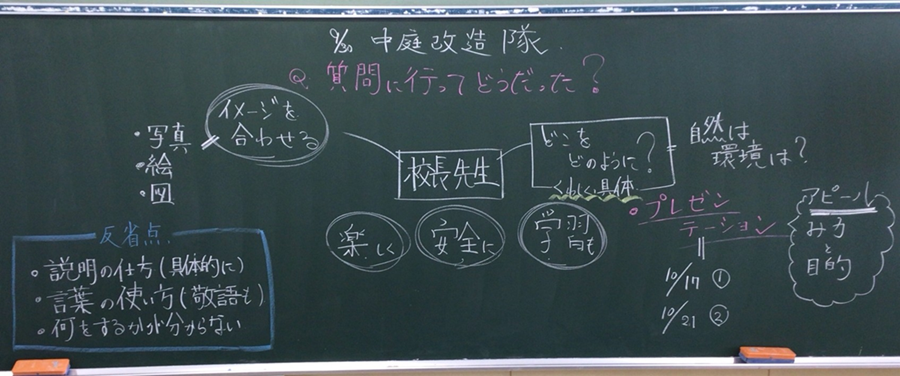 9/30 中庭改造隊
Q. 質問に行ってどうだった?
イメージを
合わせる
・写真
・絵
・図
校長先生
どこを
どのように?
くわしく具体
自然は
環境は?
楽しく
安全に
学習も
・プレゼン
テーション
10/17 ①
10/21 ②
アピール
み力
と
目的
反省点
・説明の仕方(具体的に)
・言葉の使い方(敬語も)
・何をするかが分からない